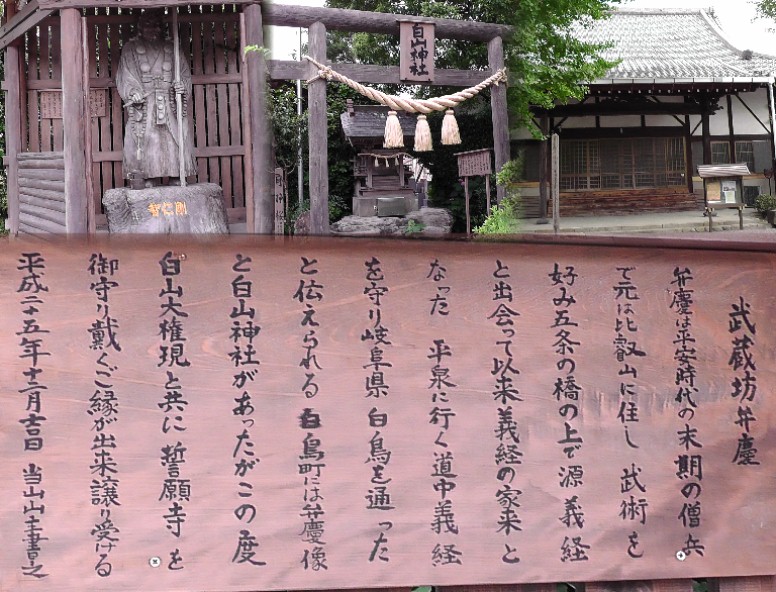 白山神社
武蔵坊弁慶
弁慶は平安時代の末期の僧兵
で元は比叡山に住し 武術を
好み五条の橋の上で源義経
と出会って以来義経の家来と
なった 平泉に行く道中義経
を守り岐阜県 白鳥を通った
と伝えられる 白鳥町には弁慶像
と白山神社があったがこの度
白山大権現と共に誓願寺を
御守り戴くご縁が出来譲り受ける
平成二十五年十二月吉日 当山山主書之